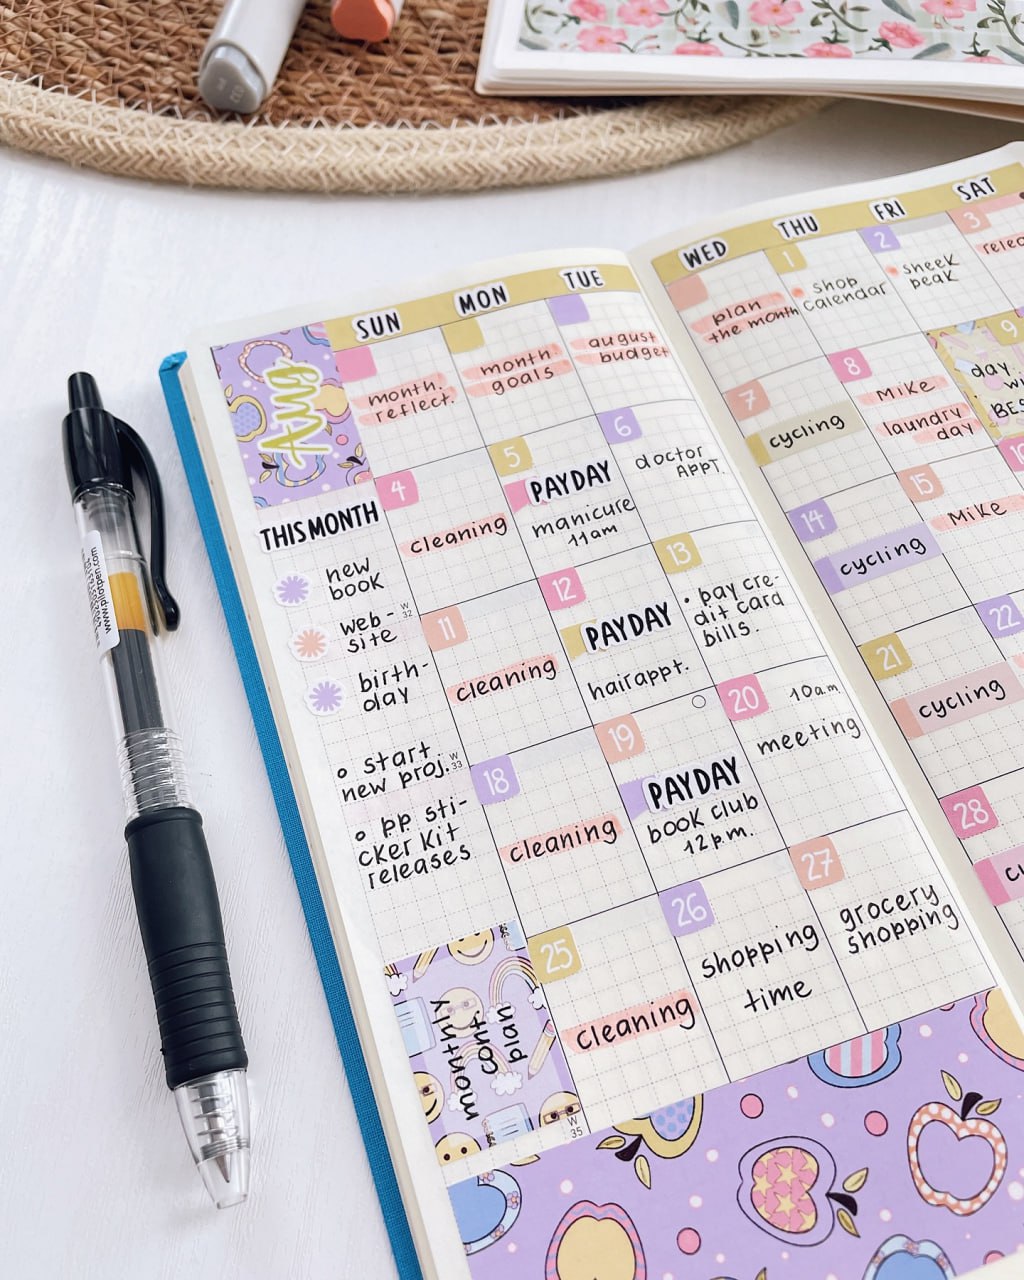 SUN
MON
TUE
WED
THU
FRI
SAT
Aug
month.
reflect.
month
goals
august
budget
plan
the month
1
shop
calendar
2
sneek
peak
3
4
cleaning
5
PAYDAY
manicure
11am
6
doctor
APPT.
7
cycling
8
Mike
laundry
day
9
day..
THIS MONTH
new
book
web-
site
birth-
day
W
32
11
cleaning
12
PAYDAY
hair appt.
13
• pay cre-
dit card
bills.
14
cycling
15
Mike
o start
new proj.
W
33
o pp sti-
cker kit
releases
18
cleaning
19
PAYDAY
book club
12 p.m.
20
10a.m.
meeting
21
cycling
22
25
cleaning
26
shopping
time
27
grocery
shopping
28
monthly
cont.
plan
W
35
www.pilotpen.com